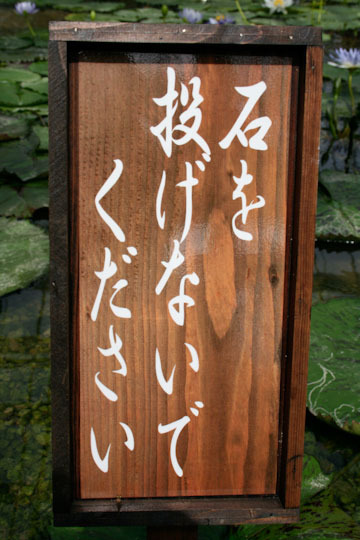 石を
投げないで
ください